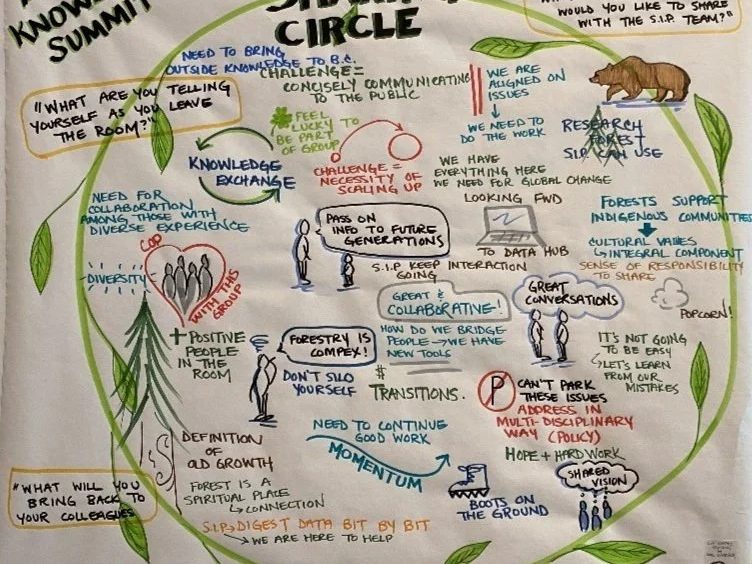 KNOWLEDGE
SUMMIT
CIRCLE
WOULD YOU LIKE TO SHARE
WITH THE S.I.P. TEAM?"
"WHAT ARE YOU TELLING
YOURSELF AS YOU LEAVE
THE ROOM?"
NEED TO BRING
OUTSIDE KNOWLEDGE TO B.C.
CHALLENGE =
CONCISELY COMMUNICATING
TO THE PUBLIC
WE ARE
ALIGNED ON
ISSUES
WE NEED TO
DO THE WORK
RESEARCH
FOREST
S.I.P. CAN USE
FEEL
LUCKY TO
BE PART
OF GROUP
KNOWLEDGE
EXCHANGE
CHALLENGE =
NECESSITY OF
SCALING UP
WE HAVE
EVERYTHING HERE
WE NEED FOR GLOBAL CHANGE
NEED FOR
COLLABORATION
AMONG THOSE WITH
DIVERSE EXPERIENCE
PASS ON
INFO TO FUTURE
GENERATIONS
LOOKING FWD
TO DATA HUB
FORESTS SUPPORT
INDIGENOUS COMMUNITIES
CULTURAL VALUES
INTEGRAL COMPONENT
SENSE OF RESPONSIBILITY
TO SHARE
S.I.P. KEEP INTERACTION
GOING
COP
DIVERSITY
WITH THIS
GROUP
GREAT &
COLLABORATIVE!
GREAT
CONVERSATIONS
POPCORN!
+ POSITIVE
PEOPLE
IN THE
ROOM
FORESTRY IS
COMPEX!
HOW DO WE BRIDGE
PEOPLE → WE HAVE
NEW TOOLS
IT'S NOT GOING
TO BE EASY
LET'S LEARN
FROM OUR
MISTAKES
DON'T SILO
YOURSELF
#
TRANSITIONS.
P
CAN'T PARK
THESE ISSUES
ADDRESS IN
MULTI-DISCIPLINARY
WAY (POLICY)
DEFINITION
OF
OLD GROWTH
NEED TO CONTINUE
GOOD WORK
MOMENTUM
HOPE + HARD WORK
SHARED
VISION
FOREST IS A
SPIRITUAL PLACE
CONNECTION
BOOTS ON
THE GROUND
"WHAT WILL YOU
BRING BACK TO
YOUR COLLEAGUES
S.I.P → DIGEST DATA BIT BY BIT
WE ARE HERE TO HELP